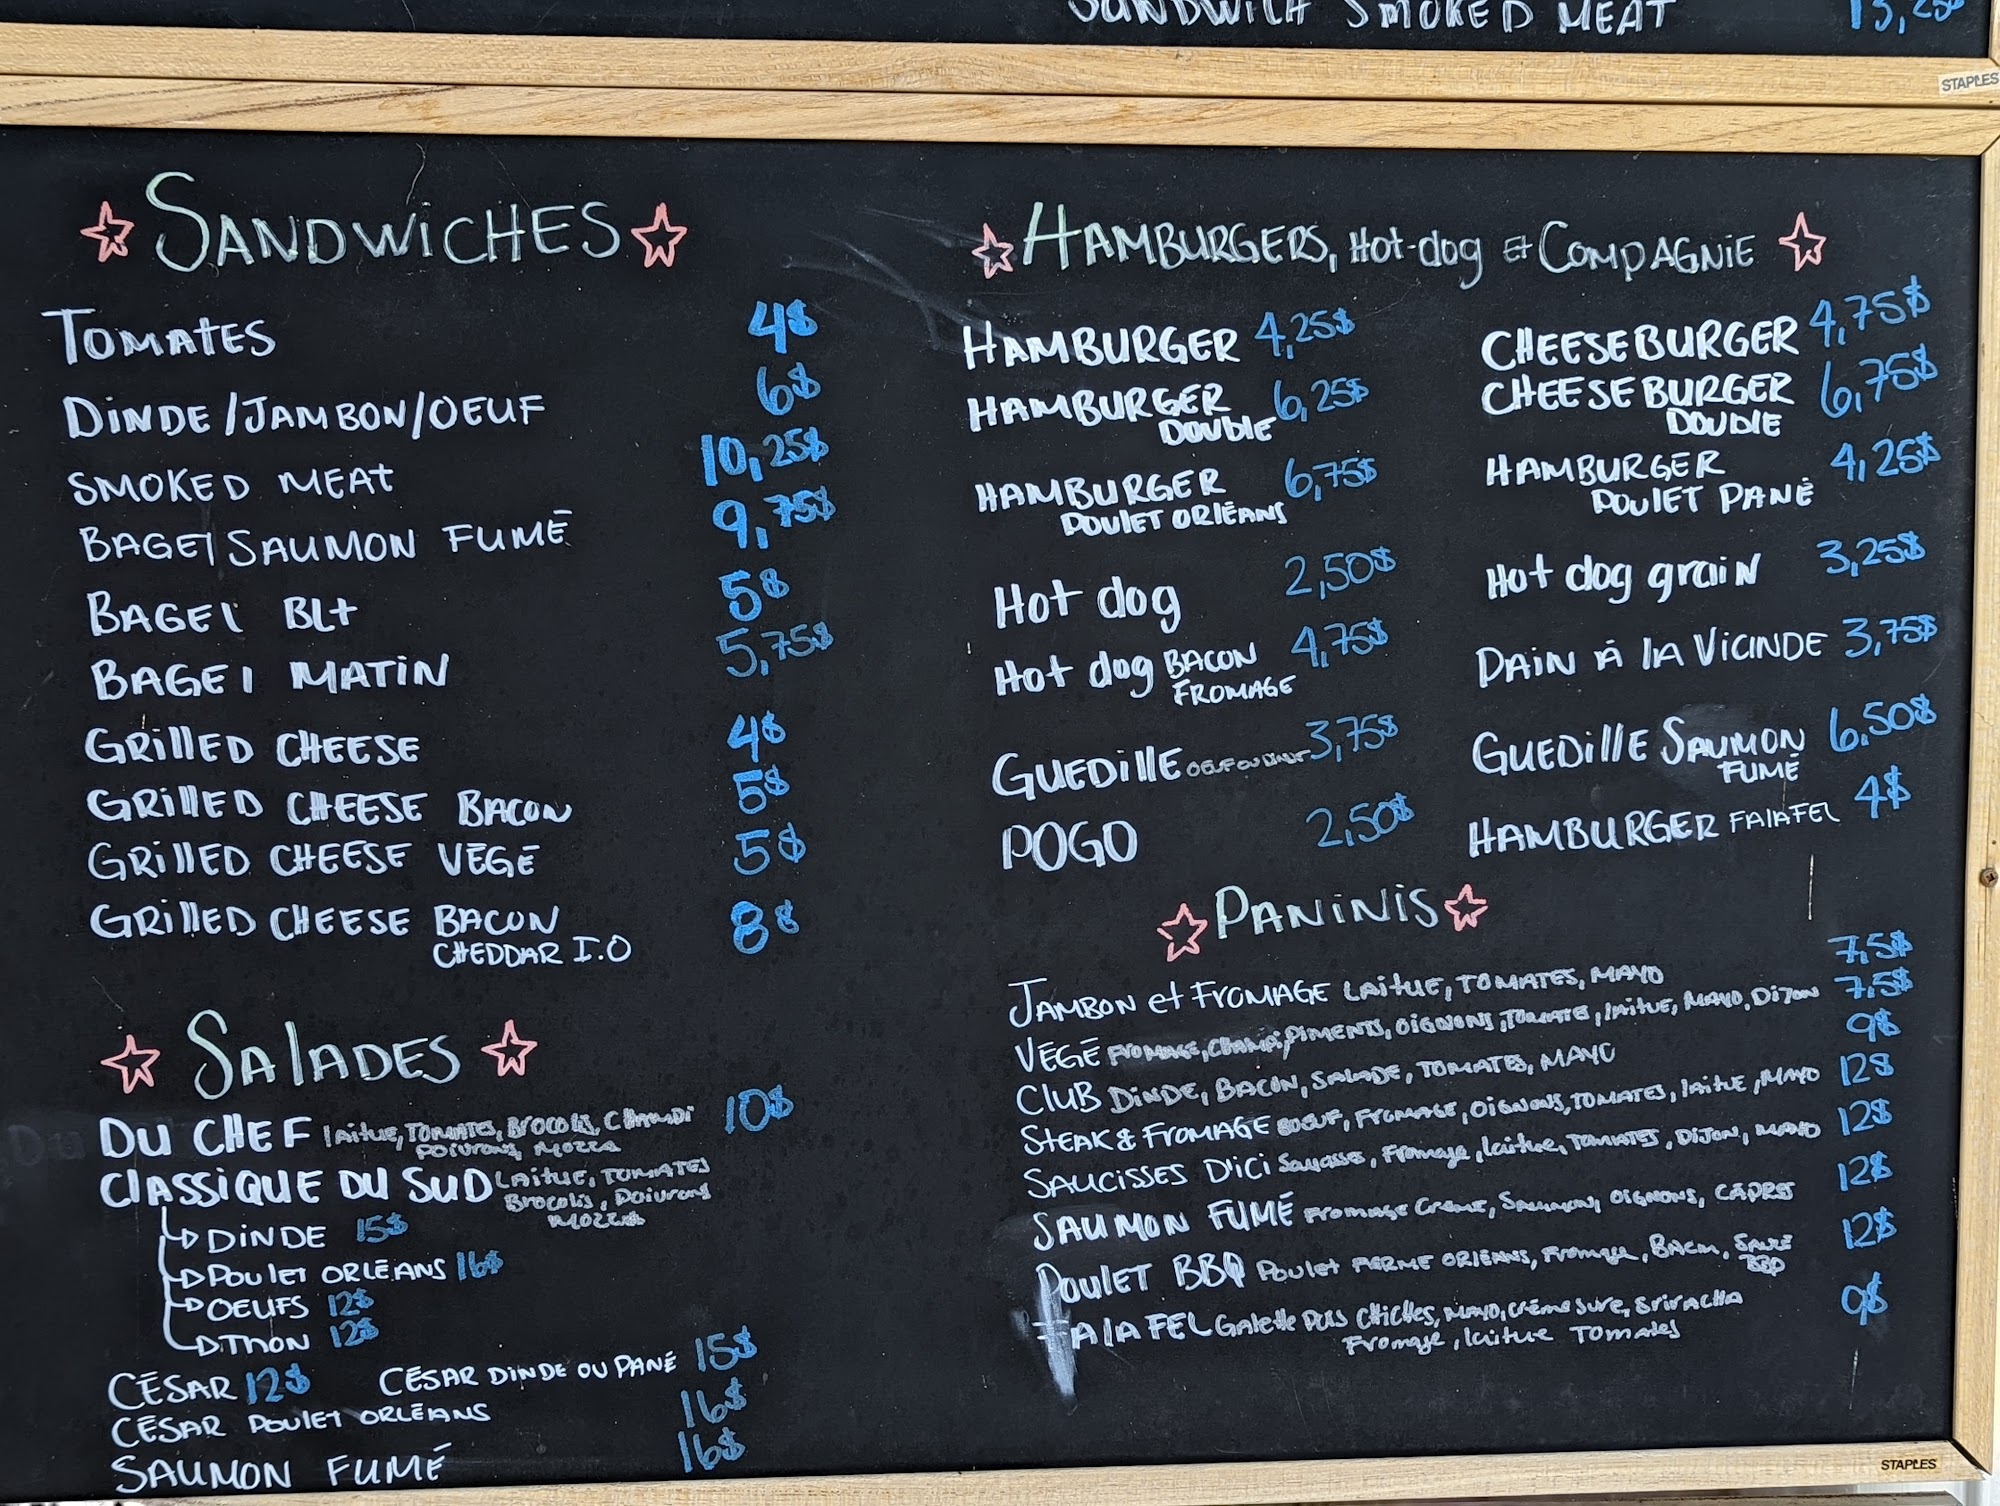 SANDWICH SMOKED MEAT 13,25$
STAPLES
SANDWICHES
TOMATES 4$
DINDE/JAMBON/OEUF 6$
SMOKED MEAT 10,25$
BAGEL SAUMON FUMÉ 9,75$
BAGEL BLT 5$
BAGEL MATIN 5,75$
GRILLED CHEESE 4$
GRILLED CHEESE BACON 5$
GRILLED CHEESE VÉGÉ 5$
GRILLED CHEESE BACON 8$
CHEDDAR I.O
SALADES
DU CHEF LAITUE, TOMATES, BROCOLIS, CHAMPI 10$
POIVRONS, MOZZA
CLASSIQUE DU SUD LAITUE, TOMATES
BROCOLIS, POIVRONS
MOZZA
DINDE 15$
POULET ORLÉANS 16$
OEUFS 12$
THON 12$
CÉSAR 12$ CÉSAR DINDE OU PANÉ 15$
CÉSAR POULET ORLÉANS 16$
SAUMON FUMÉ 16$
HAMBURGERS, HOT-DOG ET COMPAGNIE
HAMBURGER 4,25$ CHEESEBURGER 4,75$
HAMBURGER 6,25$ CHEESEBURGER 6,75$
DOUBLE DOUBLE
HAMBURGER 6,75$ HAMBURGER 4,25$
POULET ORLÉANS POULET PANÉ
HOT dog 2,50$ HOT dog grain 3,25$
HOT dog BACON 4,75$ PAIN À LA VIANDE 3,75$
FROMAGE
GUEDILLE OEUF OU DINDE 3,75$ GUEDILLE SAUMON 6,50$
FUMÉ
POGO 2,50$ HAMBURGER FALAFEL 4$
PANINIS
JAMBON et FROMAGE LAITUE, TOMATES, MAYO 7,5$
VÉGÉ FROMAGE, CHAMPI, PIMENTS, OIGNONS, TOMATE, LAITUE, MAYO, DIJON 7,5$
CLUB DINDE, BACON, SALADE, TOMATES, MAYO 9$
STEAK & FROMAGE BOEUF, FROMAGE, OIGNONS, TOMATES, LAITUE, MAYO 12$
SAUCISSES D'ICI Saucisses, Fromage, laitue, TOMATES, DIJON, MAYO 12$
SAUMON FUMÉ FROMAGE CRÈME, SAUMON, OIGNONS, CÂPRES 12$
POULET BBQ POULET FERME ORLÉANS, FROMAGE, BACON, SAUCE 12$
BBQ
FALAFEL Galette POIS CHICHES, MAYO, CRÈME SURE, SRIRACHA 9$
Fromage, laitue TOMATES
STAPLES